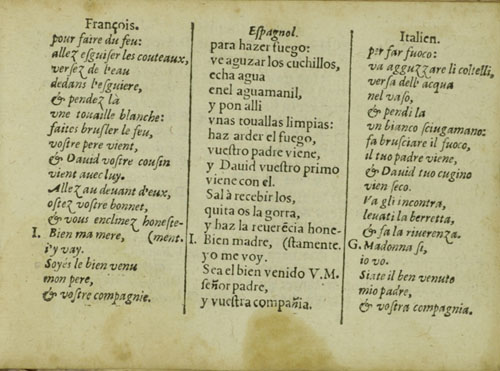 François.
pour faire du feu:
allez esguiser les couteaux,
versez de l'eau
dedans l'esguiere,
& pendez là
vne touaille blanche:
faites brusler le feu,
vostre pere vient,
& Dauid vostre cousin
vient auec luy.
Allez au deuant d'eux,
ostez vostre bonnet,
& vous enclinez honeste-
I. Bien ma mere, (ment.
i'y vay.
Soyés le bien venu
mon pere,
& vostre compagnie.
Espagnol.
para hazer fuego:
ve aguzar los cuchillos,
echa agua
enel aguamanil,
y pon alli
vnas touallas limpias:
haz arder el fuego,
vuestro padre viene,
y Dauid vuestro primo
viene con el.
Sal à recebir los,
quita os la gorra,
y haz la reuerẽcia hone-
I. Bien madre, (stamente.
yo me voy.
Sea el bien venido V. M.
señor padre,
y vuestra compañia.
Italien.
per far fuoco:
va agguzzare li coltelli,
versa dell' acqua
nel vaso,
& pendi la
vn bianco sciugamano:
fa brusciare il fuoco,
il tuo padre viene,
& Dauid tuo cugino
vien seco.
Va gli incontra,
leuati la berretta,
& fa la riuerenza.
G. Madonna si,
io vo.
Siate il ben venuto
mio padre,
& vostra compagnia.